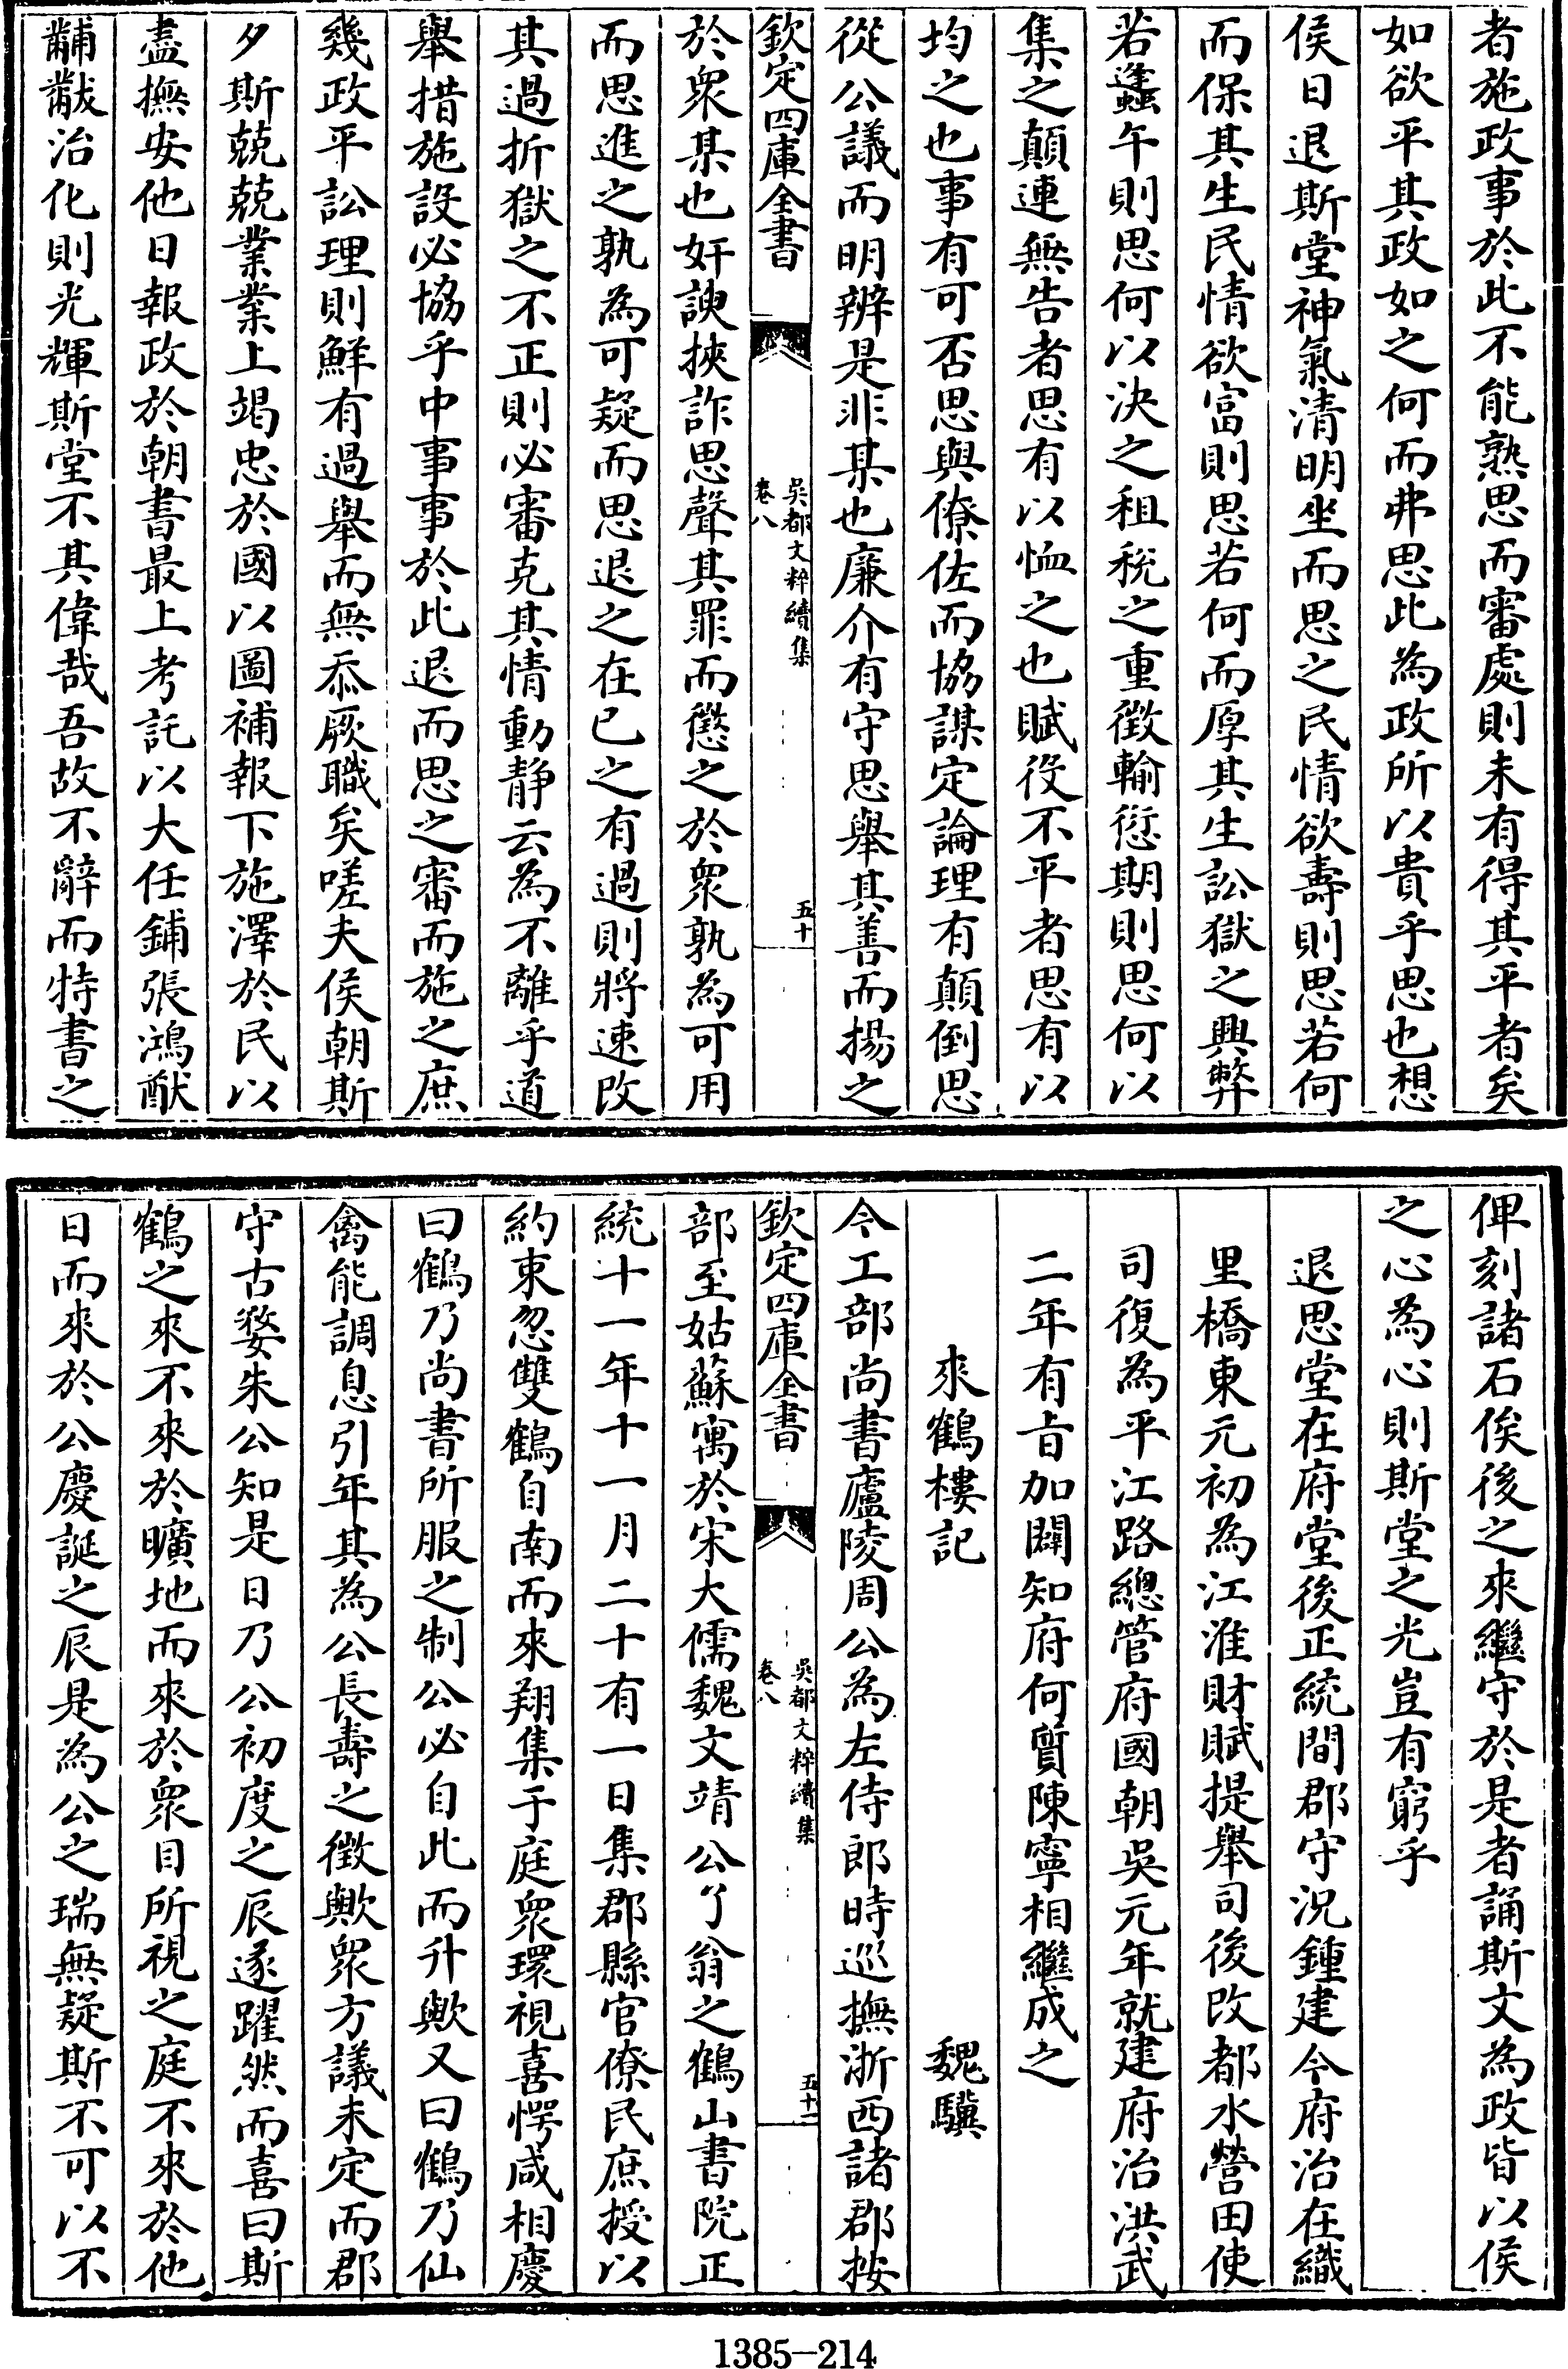 者施政事於此不能熟思而審處則未有得其平者矣
如欲平其政如之何而弗思此為政所以貴乎思也想
侯日退斯堂神氣清明坐而思之民情欲壽則思若何
而保其生民情欲富則思若何而厚其生訟獄之興弊
若蠭午則思何以決之租稅之重徵輸愆期則思何以
集之顛連無告者思有以恤之也賦役不平者思有以
均之也事有可否思與僚佐而協謀定論理有顛倒思
從公議而明辨是非某也廉介有守思舉其善而揚之
欽定四庫全書
吳都文粹續集
卷八
五十
於衆某也奸諛挾詐思聲其罪而懲之於衆孰為可用
而思進之孰為可疑而思退之在已之有過則將速改
其過折獄之不正則必審克其情動静云為不離乎道
舉措施設必協乎中事事於此退而思之審而施之庶
幾政平訟理則鮮有過舉而無忝厥職矣嗟夫侯朝斯
夕斯兢兢業業上竭忠於國以圖補報下施澤於民以
盡撫安他日報政於朝書最上考託以大任鋪張鴻猷
黼黻治化則光輝斯堂不其偉哉吾故不辭而特書之
俾刻諸石俟後之來繼守於是者誦斯文為政皆以侯
之心為心則斯堂之光豈有窮乎
退思堂在府堂後正統間郡守況鍾建今府治在織
里橋東元初為江淮財賦提舉司後改都水營田使
司復為平江路總管府國朝吳元年就建府治洪武
二年有旨加闢知府何質陳寧相繼成之
來鶴樓記 魏驥
今工部尚書廬陵周公為左侍郎時巡撫浙西諸郡按
欽定四庫全書
吳都文粹續集
卷八
五十一
部至姑蘇寓於宋大儒魏文靖公了翁之鶴山書院正
統十一年十一月二十有一日集郡縣官僚民庶授以
約束忽雙鶴自南而來翔集于庭衆環視喜愕咸相慶
曰鶴乃尚書所服之制公必自此而升歟又曰鶴乃仙
禽能調息引年其為公長壽之徵歟衆方議未定而郡
守古婺朱公知是日乃公初度之辰遂躍然而喜曰斯
鶴之來不來於曠地而來於衆目所視之庭不來於他
日而來於公慶誕之辰是為公之瑞無疑斯不可以不
1385-214